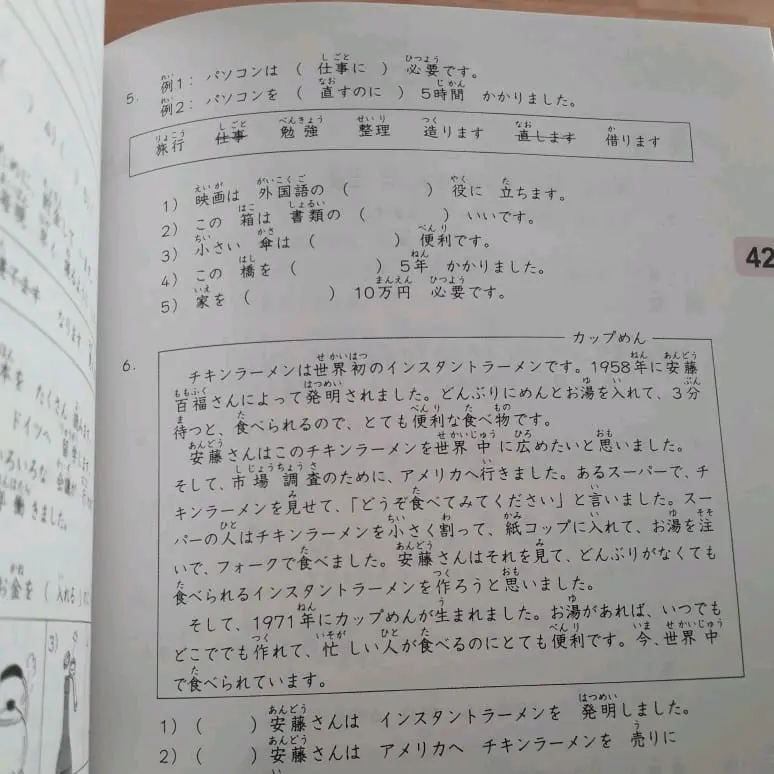 5. 例1：パソコンは（仕事に）必要です。
例2：パソコンを（直すのに）5時間 かかりました。
旅行 仕事 勉強 整理 造ります 直します 借ります
1) 映画は 外国語の（ ）役に 立ちます。
2) この 箱は 書類の（ ）いいです。
3) 小さい 傘は（ ）便利です。
4) この 橋を（ ）5年 かかりました。
5) 家を（ ）10万円 必要です。
42
6.
カップめん
チキンラーメンは世界初のインスタントラーメンです。1958年に安藤
百福さんによって発明されました。どんぶりにめんとお湯を入れて、3分
待つと、食べられるので、とても便利な食べ物です。
安藤さんはこのチキンラーメンを世界中に広めたいと思いました。
そして、市場調査のために、アメリカへ行きました。あるスーパーで、チ
キンラーメンを見せて、「どうぞ食べてみてください」と言いました。スー
パーの人はチキンラーメンを小さく割って、紙コップに入れて、お湯を注
いで、フォークで食べました。安藤さんはそれを見て、どんぶりがなくても
食べられるインスタントラーメンを作ろうと思いました。
そして、1971年にカップめんが生まれました。お湯があれば、いつでも
どこででも作れて、忙しい人が食べるのにとても便利です。今、世界中
で食べられています。
1)（ ）安藤さんは インスタントラーメンを 発明しました。
2)（ ）安藤さんは アメリカへ チキンラーメンを 売りに